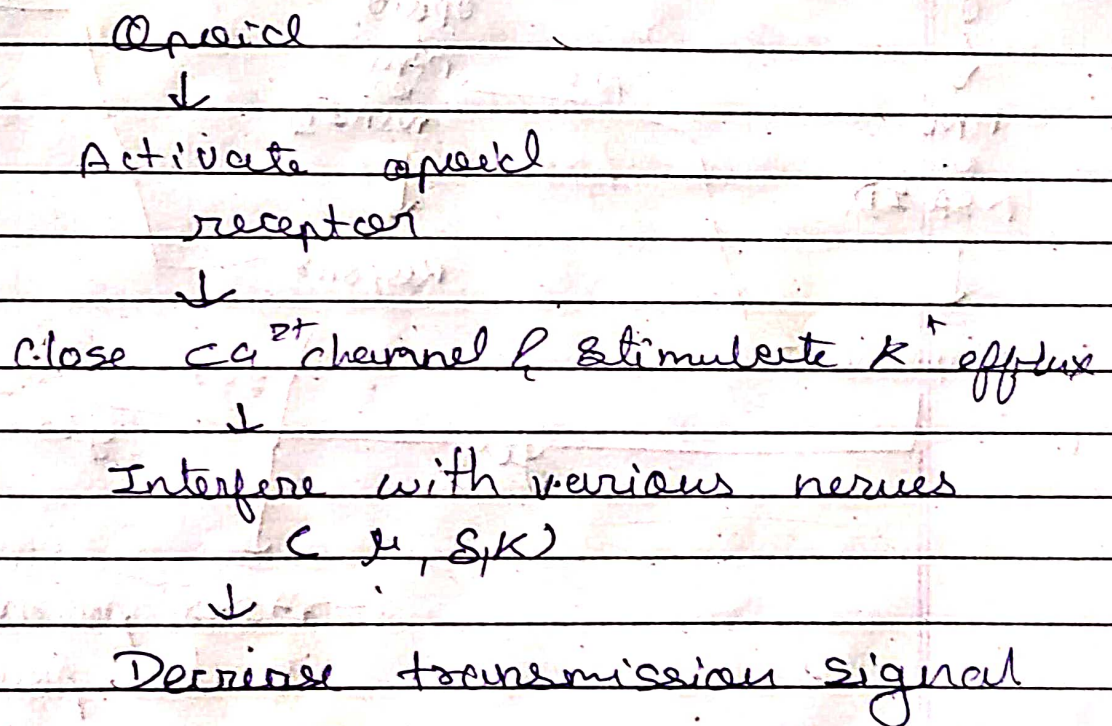 Opoicl
↓
Activate opoicl
receptor
↓
Close Ca²⁺ channel & stimulate K⁺ efflux
↓
Interfere with various nerves
( μ, δ, K)
↓
Decrease transmission signal